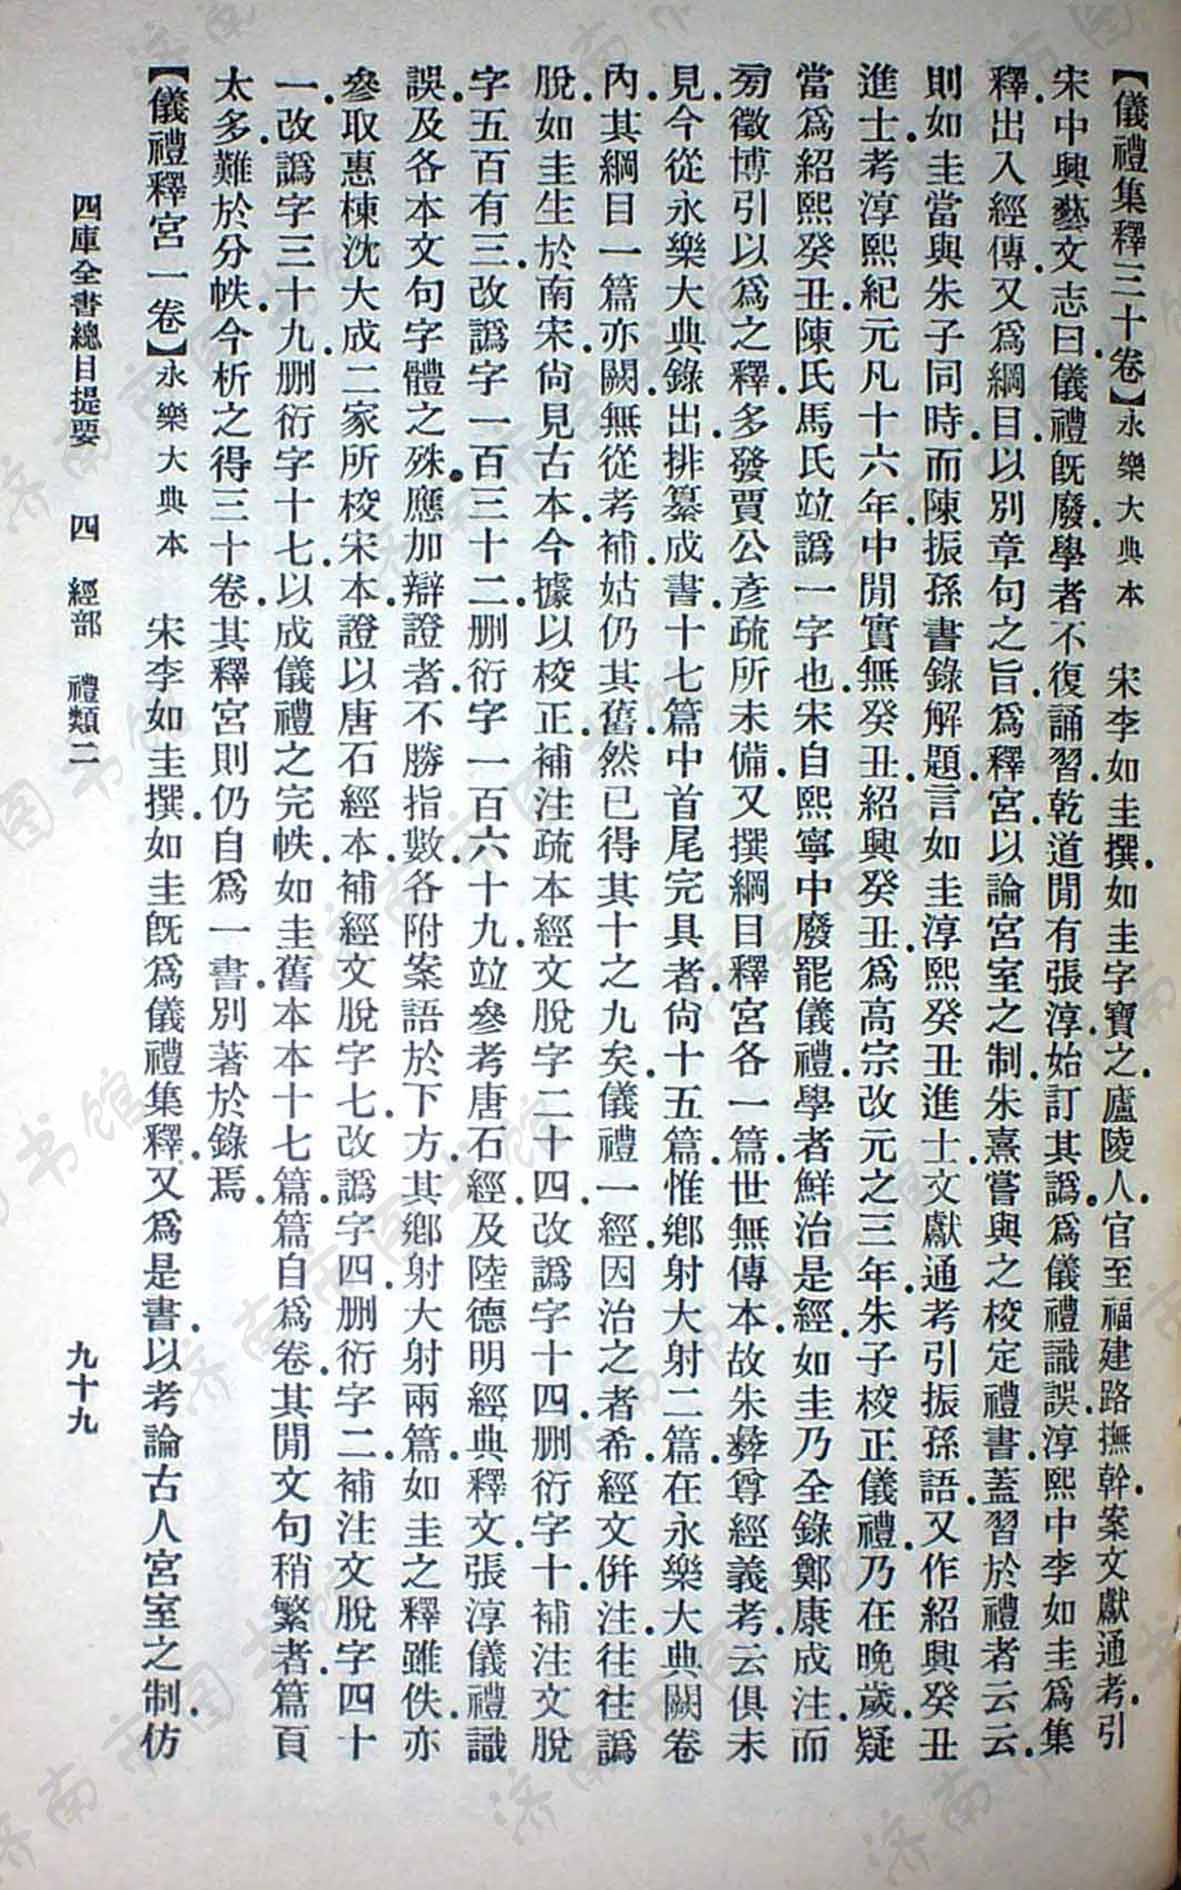 【儀禮集釋三十卷】永樂大典本　宋李如圭撰.如圭字寶之.廬陵人.官至福建路撫幹.案文獻通考.引
宋中興藝文志曰.儀禮旣廢.學者不復誦習.乾道閒有張淳.始訂其譌.爲儀禮識誤.淳熙中李如圭爲集
釋.出入經傳.又爲綱目.以別章句之旨.爲釋宮.以論宮室之制.朱熹嘗與之校定禮書.蓋習於禮者云云.
則如圭當與朱子同時.而陳振孫書錄解題.言如圭淳熙癸丑進士.文獻通考引振孫語.又作紹興癸丑
進士.考淳熙紀元凡十六年.中閒實無癸丑.紹興癸丑.爲高宗改元之三年.朱子校正儀禮.乃在晚歲.疑
當爲紹熙癸丑.陳氏馬氏竝譌一字也.宋自熙寧中廢罷儀禮.學者鮮治是經.如圭乃全錄鄭康成注.而
旁徵博引以爲之釋.多發賈公彥疏所未備.又撰綱目釋宮各一篇.世無傳本.故朱彝尊經義考.云俱未
見.今從永樂大典錄出.排纂成書.十七篇中首尾完具者.尙十五篇.惟鄉射大射二篇.在永樂大典闕卷
內.其綱目一篇亦闕.無從考補.姑仍其舊.然已得其十之九矣.儀禮一經.因治之者希.經文併注.往往譌
脫.如圭生於南宋.尙見古本.今據以校正.補注疏本經文脫字二十四.改譌字十四.刪衍字十.補注文脫
字五百有三.改譌字一百三十二.刪衍字一百六十九.竝參考唐石經.及陸德明經典釋文.張淳儀禮識
誤.及各本文句字體之殊.應加辯證者.不勝指數.各附案語於下方.其鄉射大射兩篇.如圭之釋雖佚.亦
參取惠棟沈大成二家所校宋本.證以唐石經本.補經文脫字七.改譌字四.刪衍字二.補注文脫字四十
一.改譌字三十九.刪衍字十七.以成儀禮之完帙.如圭舊本.本十七篇.篇自爲卷.其閒文句稍繁者.篇頁
太多.難於分帙.今析之得三十卷.其釋宮則仍自爲一書.別著於錄焉.
【儀禮釋宮一卷】永樂大典本　宋李如圭撰.如圭旣爲儀禮集釋.又爲是書.以考論古人宮室之制.仿
四庫全書總目提要　四　經部　禮類二　九十九
济南市图书馆